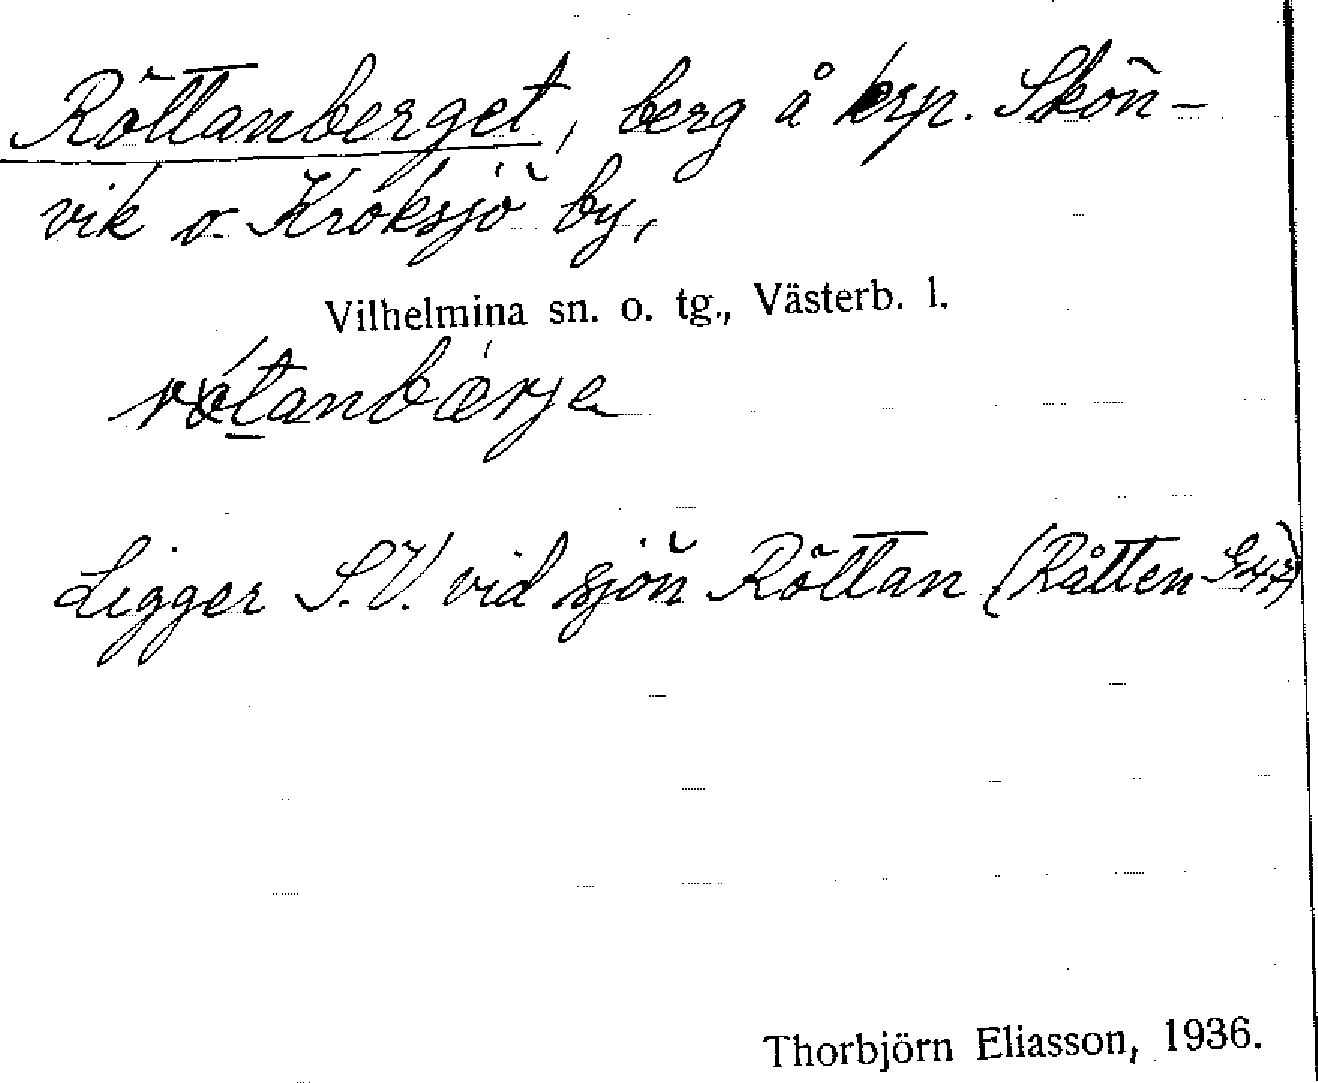 Röttanberget, berg å krp. Skön-
vik o. Kroksjö by,
Vilhelmina sn. o. tg., Västerb. l.
Ligger S.V. vid sjön Röttan (Råtten
Thorbjörn Eliasson, 1936.